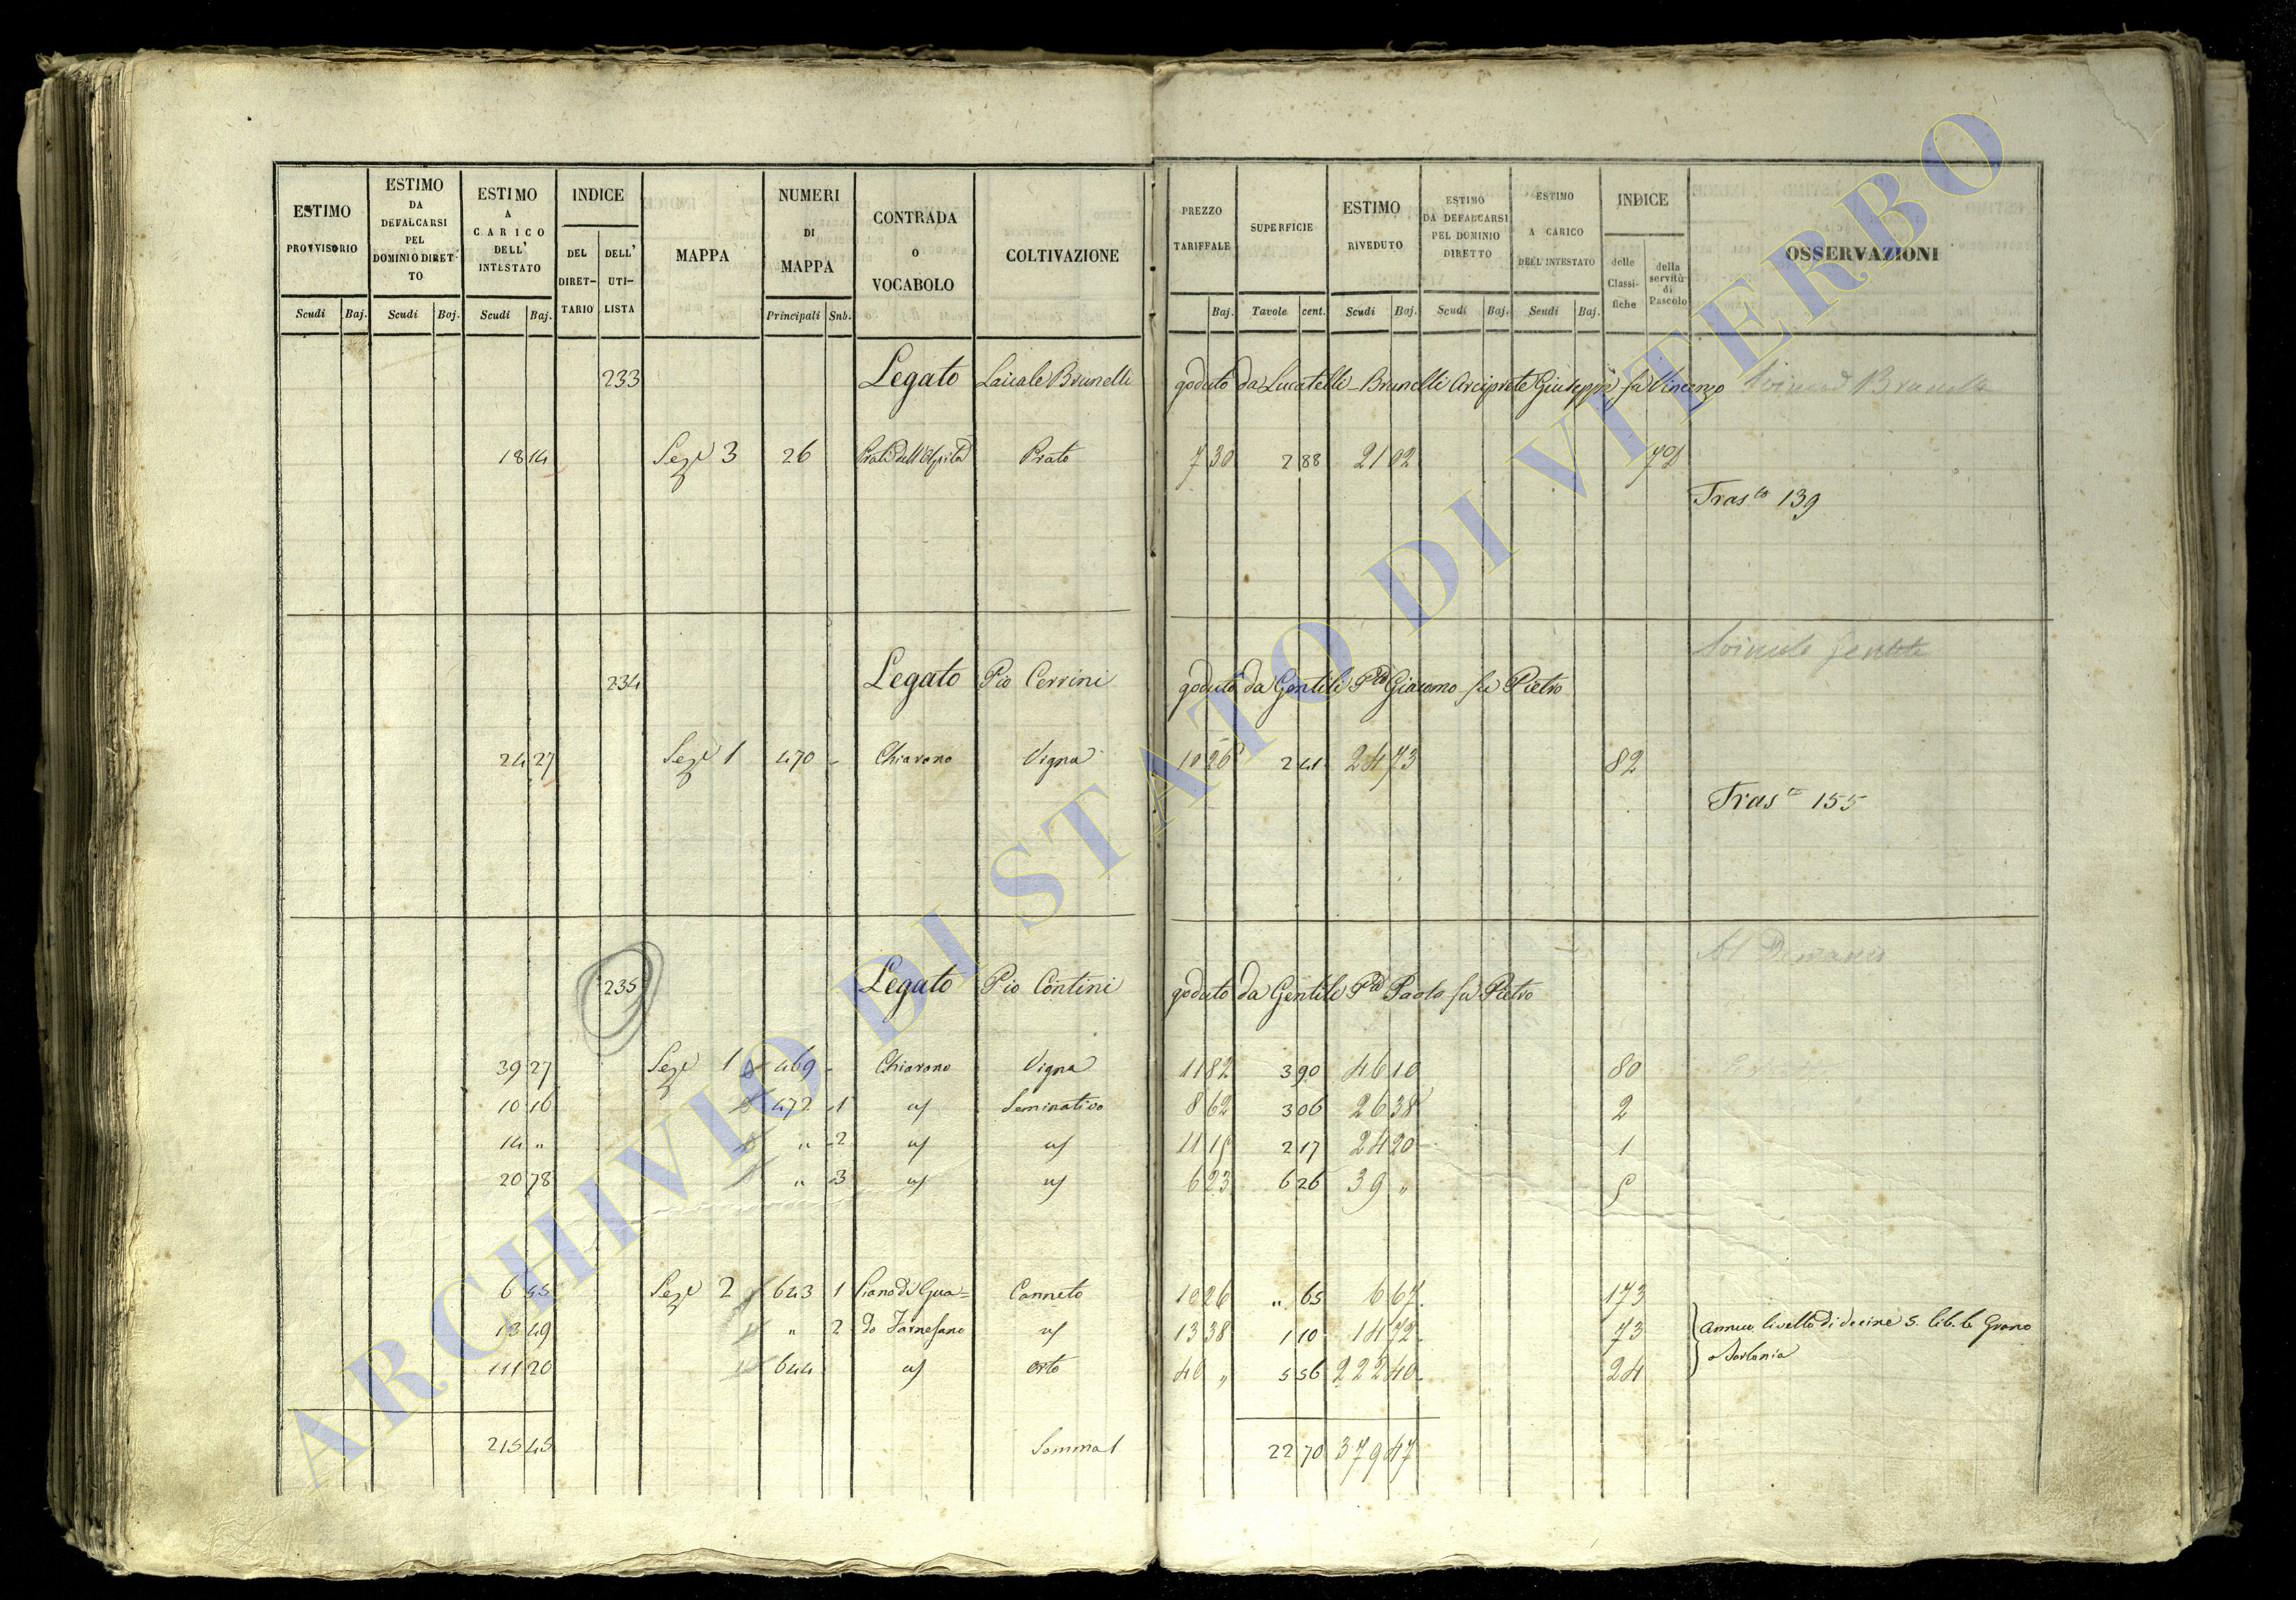 ESTIMO PROVVISORIO | ESTIMO DA DEFALCARSI PEL DOMINIO DIRETTO | ESTIMO A CARICO DELL' INTESTATO | INDICE DEL DIRETTARIO | DELL' UTILISTA | MAPPA | NUMERI DI MAPPA | CONTRADA o VOCABOLO | COLTIVAZIONE | PREZZO TARIFFALE | SUPERFICIE | ESTIMO RIVEDUTO | ESTIMO DA DEFALCARSI PEL DOMINIO DIRETTO | ESTIMO A CARICO DELL'INTESTATO | INDICE delle Classifiche | della servitù di Pascolo | OSSERVAZIONI
Scudi Baj. Scudi Baj. Scudi Baj. Principali Sub. Baj. Tavole cent. Scudi Baj. Scudi Baj. Scudi Baj.
233 Legato Laicale Brunelli goduto da Lucatelli-Brunelli Arciprete Giuseppe fu Vincenzo
18 14 Seze 3 26 Prati dell' Prato 7 30 2 88 21 02
Tras to 139
234 Legato Pio Cerrini goduto da Gentili Giacomo fu Pietro
24 27 Seze 1 470 Chiarano Vigna 10 26 2 41 24 73 82
Tras to 155
Al Demanio
235 Legato Pio Contini goduto da Gentili Paolo fu Pietro
39 27 Seze 1 469 Chiarano Vigna 11 82 3 90 46 10 80
10 16 472 1 " Seminativo 8 62 3 06 26 38 2
14 " " 2 " " 11 15 2 17 24 20 1
20 78 " 3 " " 6 23 6 26 39 " 5
6 55 Seze 2 643 1 Piano di Gua= Canneto 10 26 " 65 6 67 173
13 49 " 2 do Farnesano " 13 38 1 10 14 72 73 annuo livello di decine 5. lib. 6 Grano
111 20 644 " orto 40 " 5 56 222 40 24
215 45 Somma 22 70 379 47
ARCHIVIO DI STATO DI VITERBO